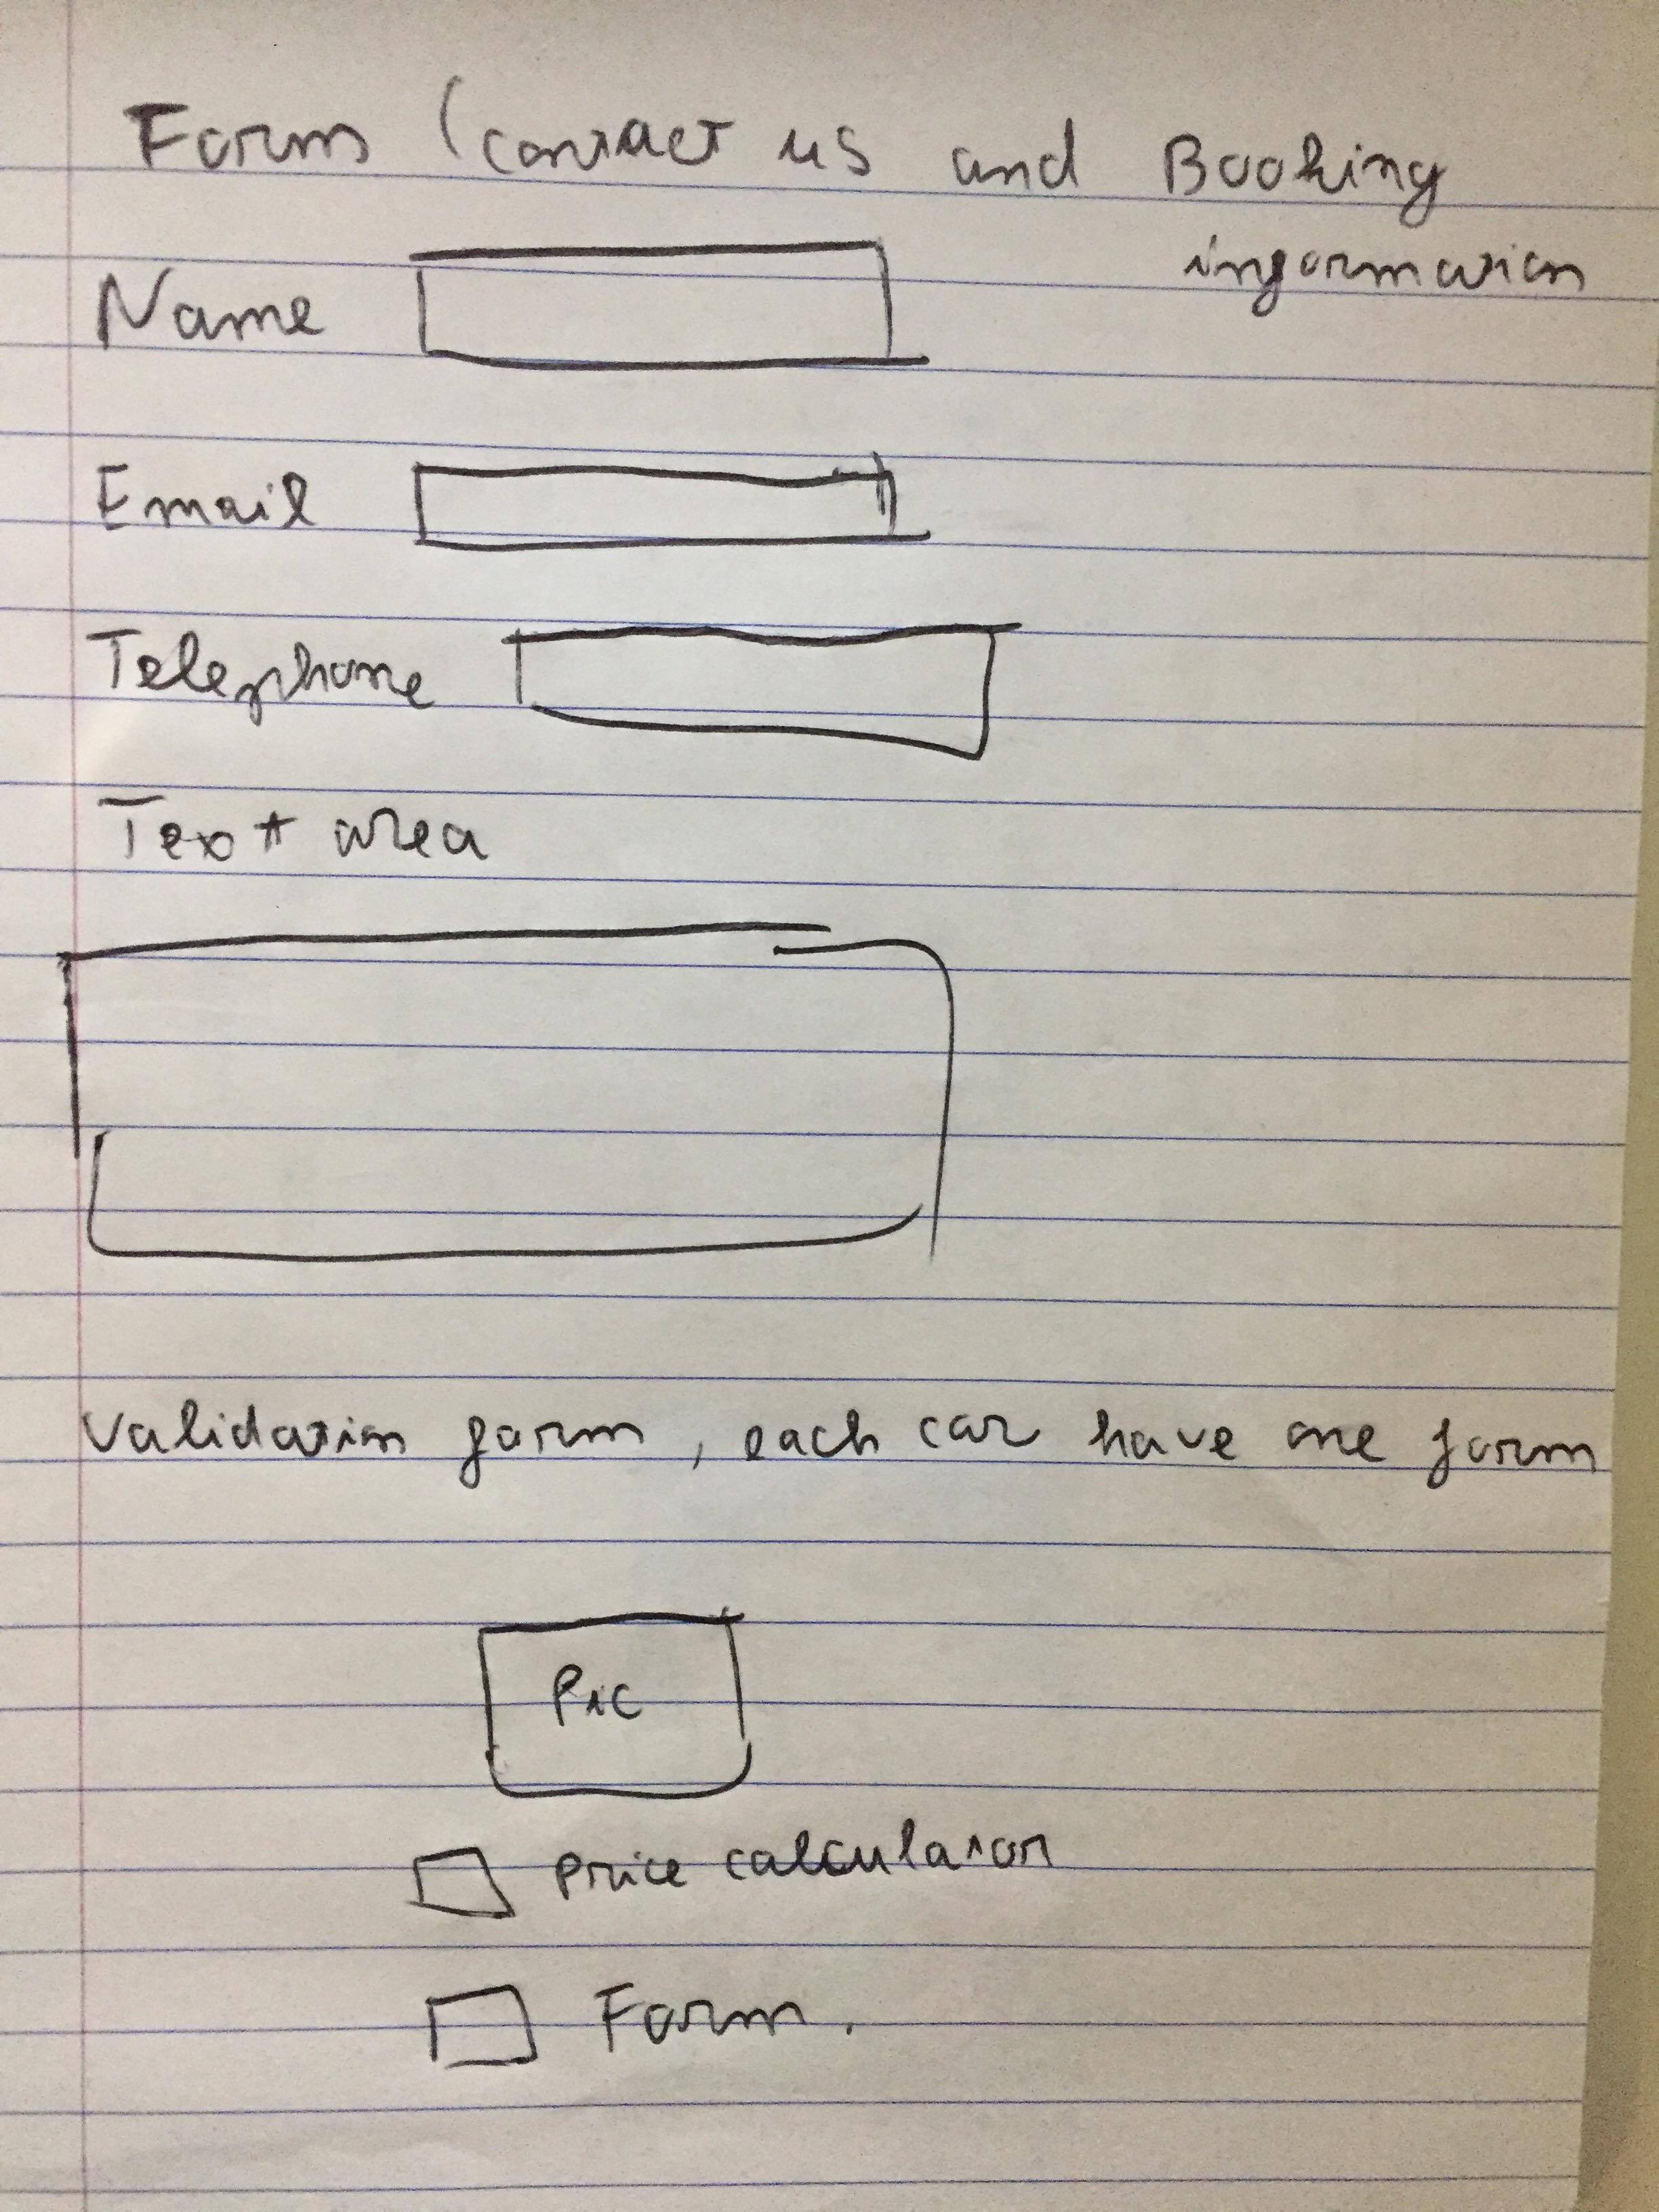 Form (contact us and Booking
information
Name
Email
Telephone
Text area
Validation form, each car have one form
Pic
price calculator
Form.